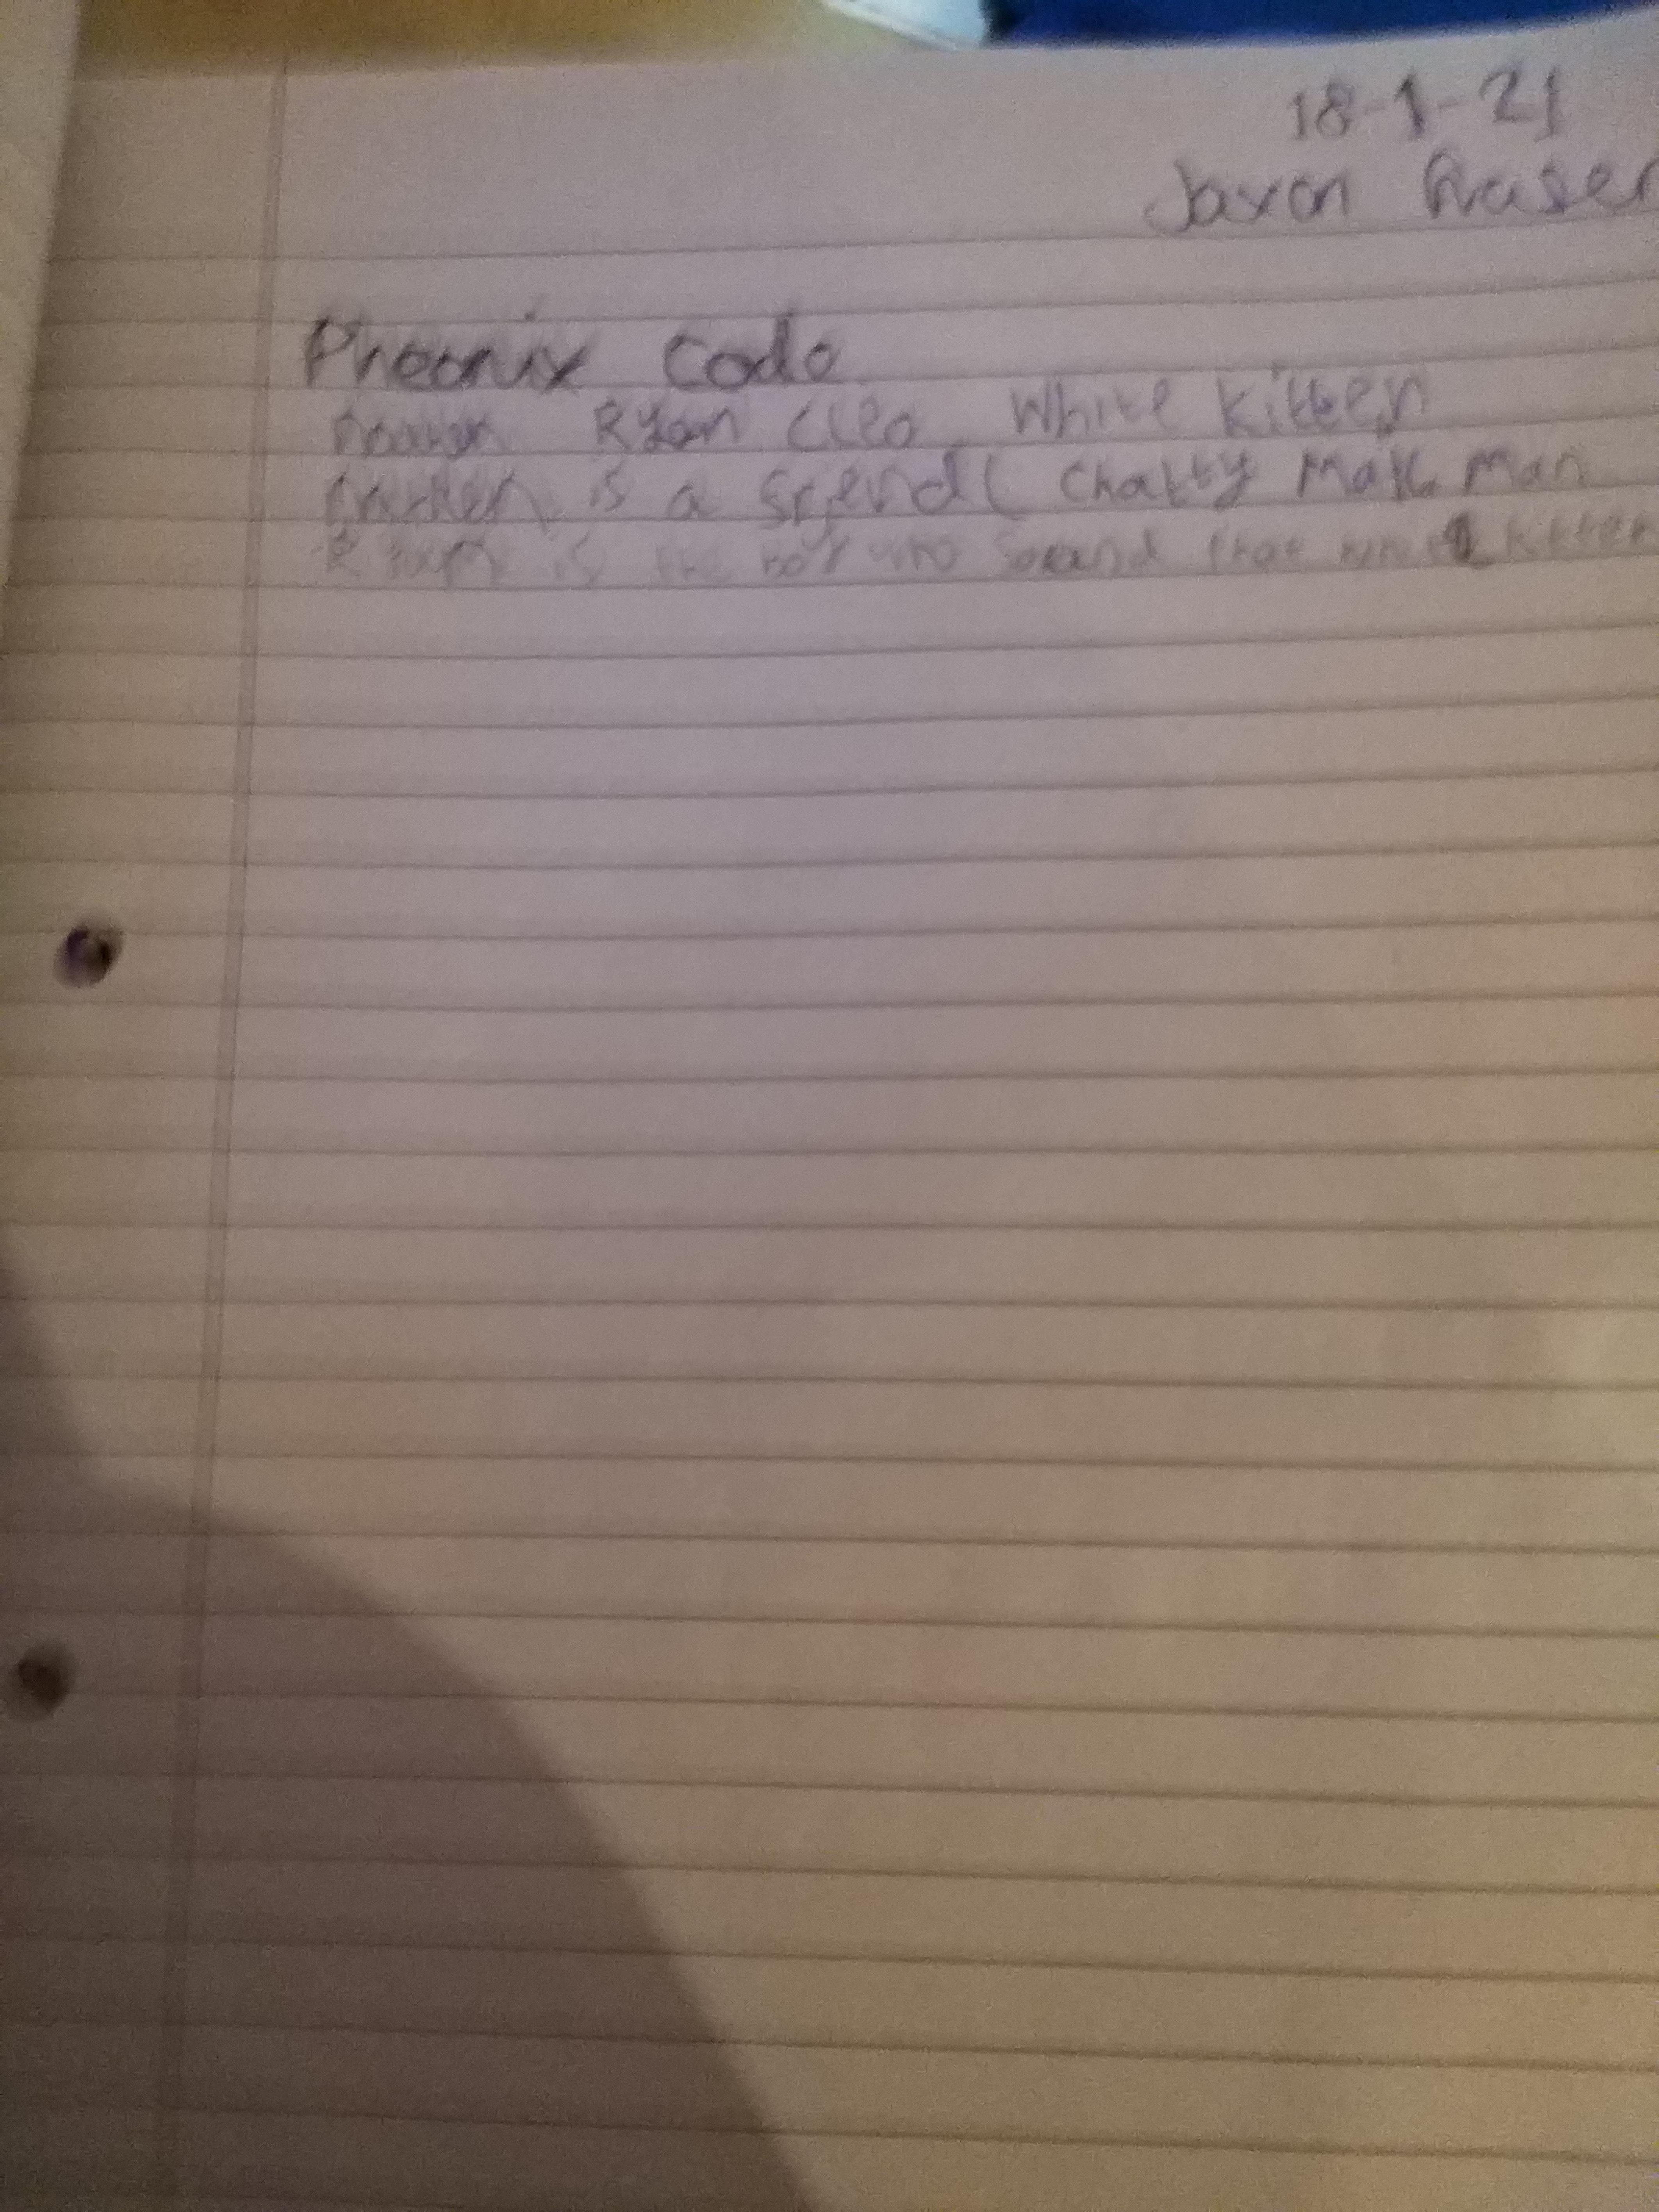 18-1-21
Jaxon Fraser
Pheonix Code
Ryan Cleo White Kitten
is a Sriend( Chatty Mail Man
is the boy who Soeand that white Kitten